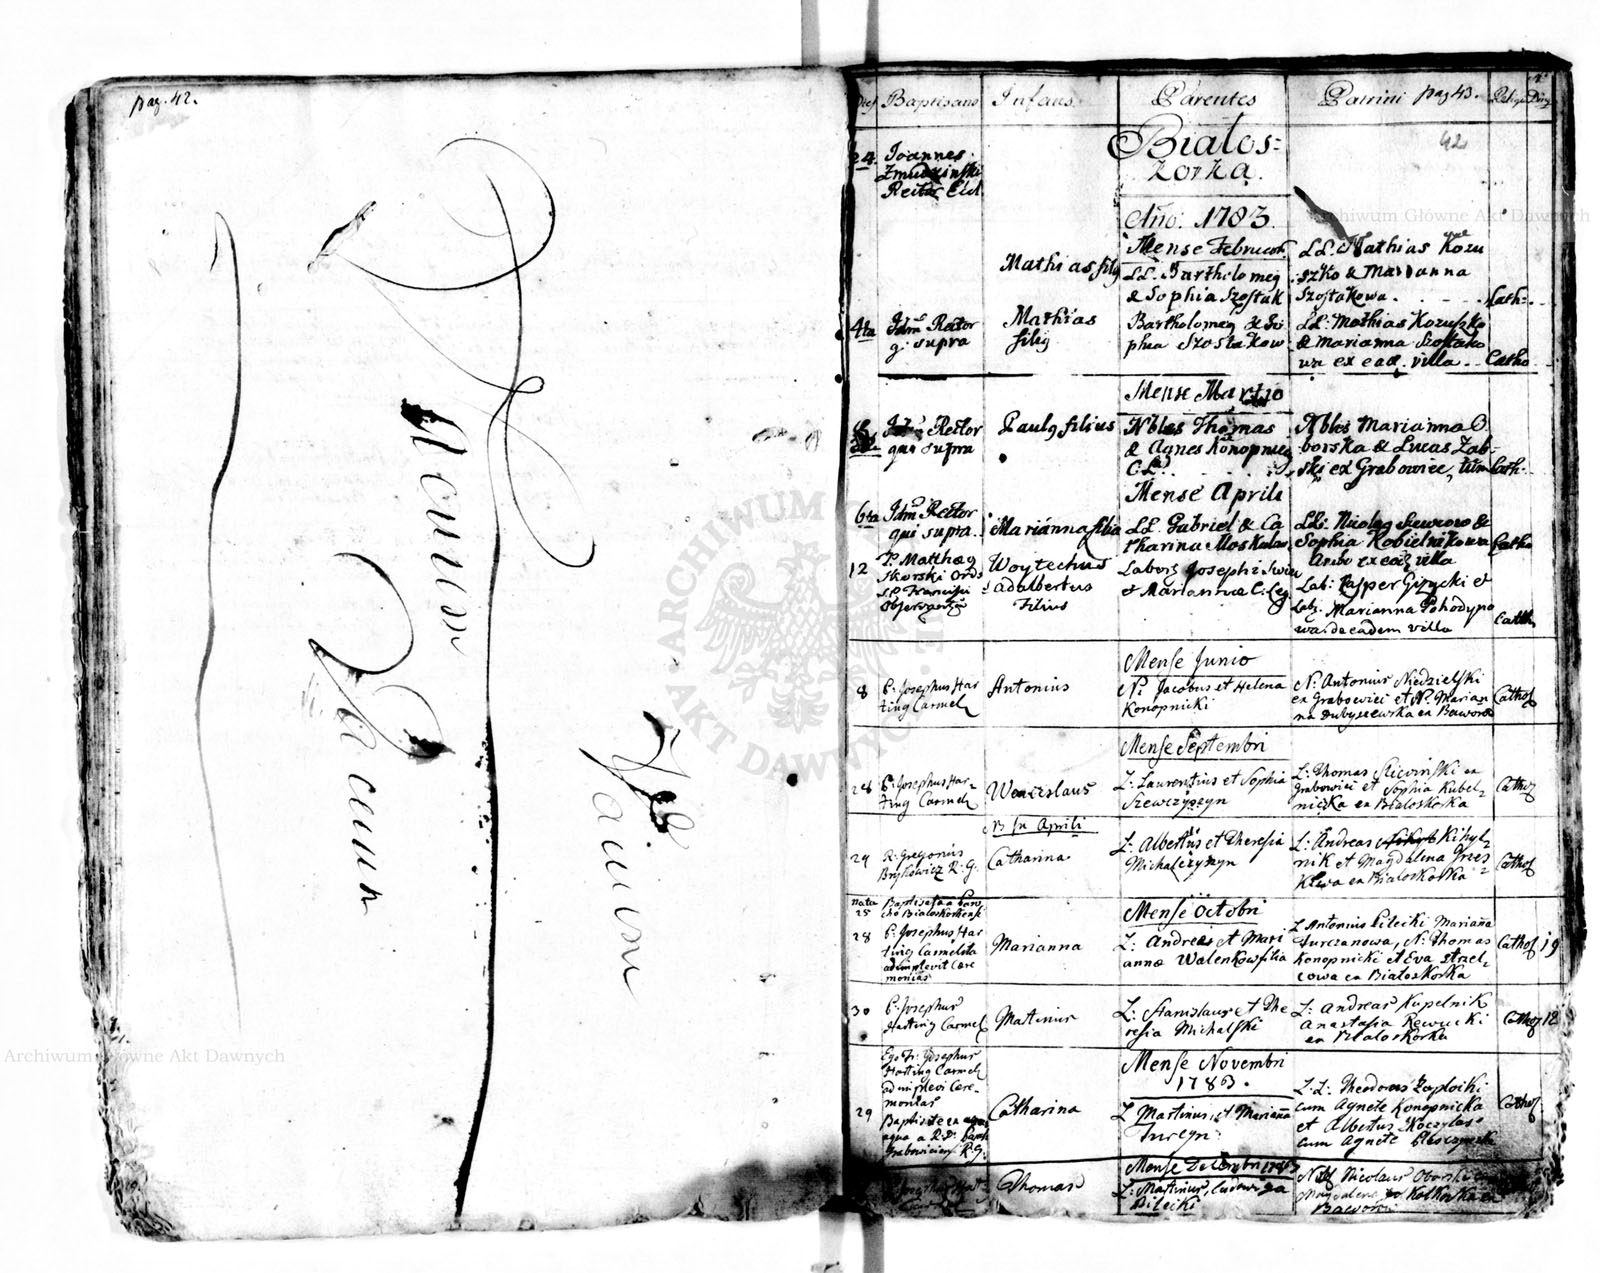 pag. 42.
Vacuum
Vacuum
Vacuum
Dies Baptisans Infans Parentes Patrini pag 43. Religio
42
Białos=
zorka.
24. Joannes
Zmudzinski
Rector Eccl
Año: 1783.
Mense Februar.
Mathias filg
LL. Bartholomeg
& Sophia Szostak
LL. Mathias Kozu
szko & Marianna
Szostakowa. Cath:
4ta Idm Rector
q: supra
Mathias
filig
Bartholomeg & So
phia Szostakow
LL: Mathias Kozuszko
& Marianna Szostako
wa ex ead. villa Catho
Mense Martio
Idm Rector
qui supra
Paulg filius
Nbles Thomas
& Agnes Konopnicg
C.L.
Nbles Marianna O
borska & Lucas Zab-
ski ex Grabowiec, Cath.
Mense Aprili
6ta Idm Rector
qui supra.
Marianna filia
LL. Gabriel & Ca
tharina Moskalow
LL: Nicolag &
Sophia Kobielnikowa
Ambo ex ead villa
Catho
12 P. Matthæg
Skorski Ords
S.P. Francisci
Observantiæ
Woytechus
adalbertus
Filius
Labors Josephi
et Mariannæ C: Leg
Lab: Kasper Gizycki et
Lab: Marianna Pohodyno
wa. de eadem villa
Cath.
Mense Junio
8 P. Josephus Har
ting Carmel
Antonius
N: Jacobus et Helena
Konopnicki
N: Antonius Niedzielski
ex Grabowiec et N: Marian
na Dubyszewska ex Baworow
Cathol
Mense Septembri
28 P. Josephus Har-
ting Carmel
Wenceslaus
L: Laurentius et Sophia
Szewczyszyn
L: Thomas
Grabowiec et Sophia Kubel-
niczka ex Białoskorka
Cathol
NB In Aprili
29 R: Gregorius
Brykowicz R: G.
Catharina
L: Albertus et Theresia
Michalczyszyn
L: Andreas Kihyl-
nik et Magdalena
ex Białoskorka
Cathol
nata
25
Baptisata a Paro
cho Białoskorkensi
Mense Octobri
28 P. Josephus Har
ting Carmelita
adimplevit Cere
monias
Marianna
L: Andreas et Mari
anna Walenkow filia
L Antonius Pilecki Mariaña
Turczanowa, N: Thomas
Konopnicki et Eva Strzel-
cowa ex Białoskorka
Cathol 19
30 P. Josephus
Harting Carmel
Martinus
L: Stanislaus et The
resia Michalski
L: Andreas Kupelnik
Anastasia Rewucki
ex Białoskorka
Cathol 12
Mense Novembri
1783.
Ego Fr: Josephus
Harting Carmel
adimplevi Cere-
monias
29
Baptisata ex
aqua a R.D: Paroch
Grabowicien R: G.
Catharina
L Martinus, et Mariaña
Turcyn
L: L: Theodorus Zaplocki
cum Agnete Konopnicka
et Albertus Koczylas
cum Agnete
Cathol
Mense Decembri 1783
P. Josephus Hart
Carmel
Thomas
L: Martinus, Ludoviga
Bilecki
Nbl Nicolaus Oborski
Magdalena
Baworow
Archiwum Główne Akt Dawnych
Archiwum Główne Akt Dawnych
ARCHIWUM GŁÓWNE AKT DAWNYCH